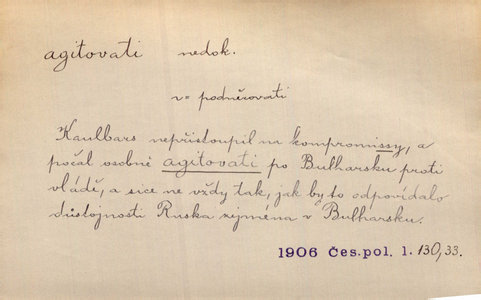 agitovati nedok.
v = podněcovati
Kaulbars nepřistoupil na kompromissy, a
počal osobně agitovati po Bulharsku proti
vládě, a sice ne vždy tak, jak by to odpovídalo
důstojnosti Ruska zejmena v Bulharsku.
1906 Čes. pol. 1. 130, 33.